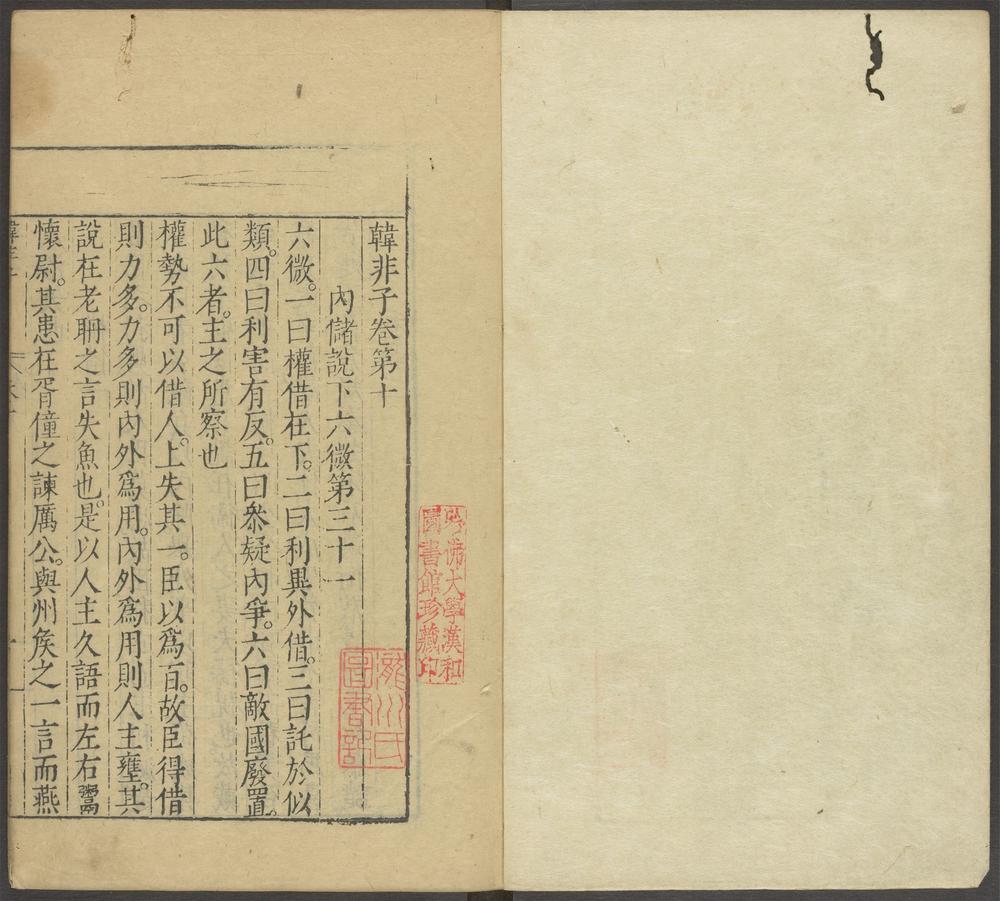 韓非子卷第十
內儲說下六微第三十一
六微。一曰權借在下。二曰利異外借。三曰託於似
類。四曰利害有反。五曰叅疑內爭。六曰敵國廢置。
此六者。主之所察也
權勢不可以借人。上失其一。臣以爲百。故臣得借
則力多。力多則內外爲用。內外爲用則人主壅。其
說在老聃之言失魚也。是以人主久語而左右鬻
懷尉。其患在胥僮之諫厲公。與州侯之一言而燕
哈佛大學漢和
圖書館珍藏印
瀧川氏
圖書記